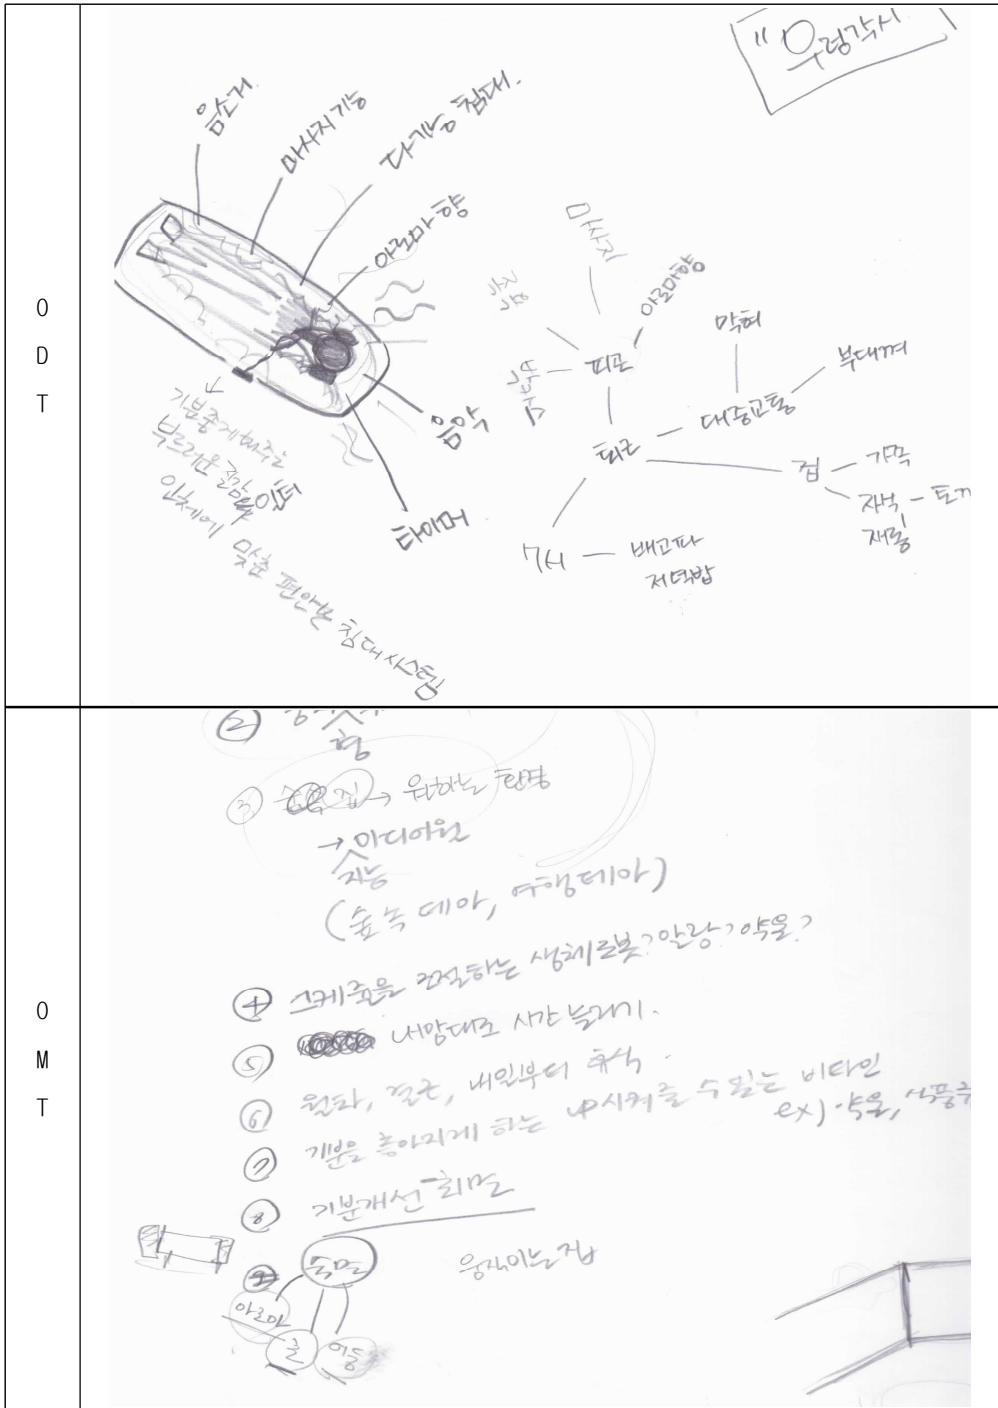 O
D
T
"우렁각시
음소거.
마사지기능
다기능 침대.
아로마 향
음악
타이머
기분좋게해주는
부드러운 질감
인체에 맞춘 편안한 침대시스템
마사지
아로마향
피곤
퇴근
막혀
대중교통
부대껴
집
가족
자식 - 토끼
재롱
7시
배고파
저녁밥
O
M
T
②
③ 집 → 원하는 환경
→ 미디어월
지능
(숲속 테마, 여행테마)
④ 스케줄을 조절하는 생체로봇? 알람? 약물?
⑤ 내맘대로 시간 늘리기.
⑥ 월차, 결근, 내일부터 휴식.
⑦ 기분을 좋아지게 하는 up시켜줄 수 있는 비타민
ex) 약물, 식품
⑧ 기분개선
숙면
움직이는집
아로마
어둠